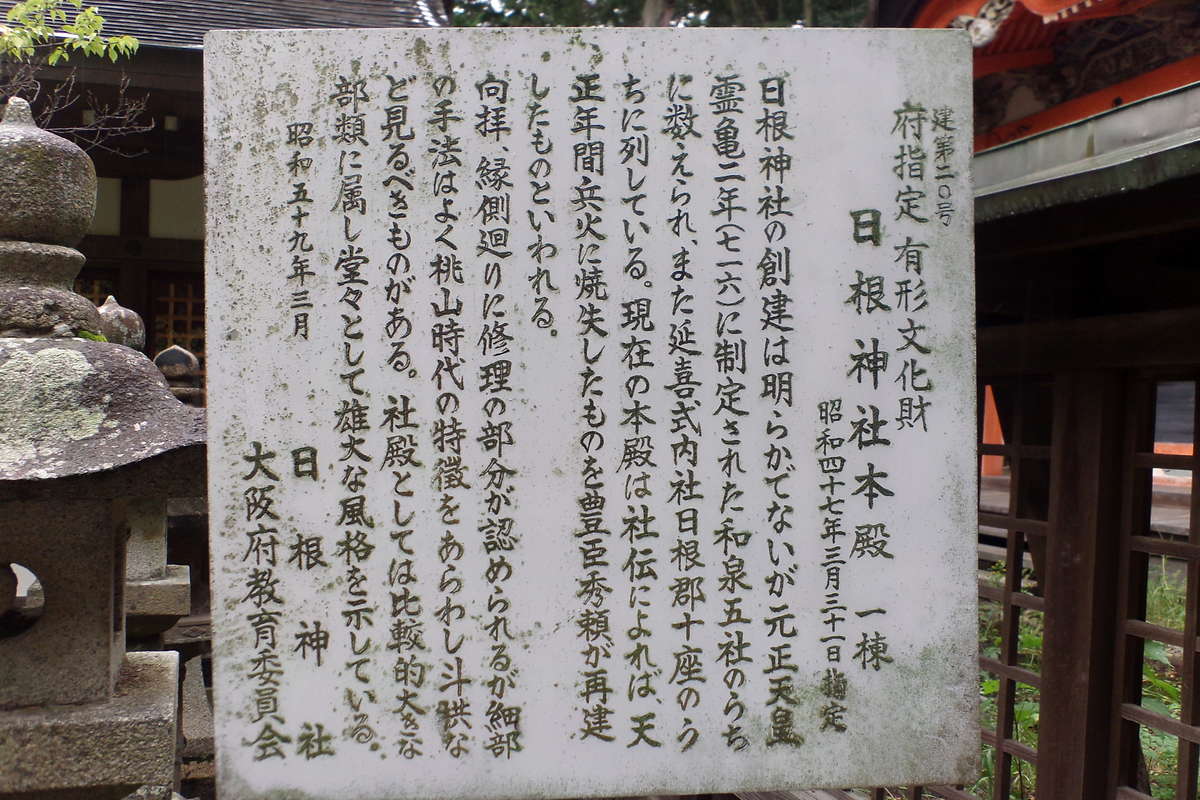 建第二〇号
府指定 有形文化財
日根神社本殿 一棟
昭和四十七年三月三十一日指定
日根神社の創建は明らかでないが元正天皇
霊亀二年(七一六)に制定された和泉五社のうち
に数えられ、また延喜式内社日根郡十座のう
ちに列している。現在の本殿は社伝によれば、天
正年間兵火に焼失したものを豊臣秀頼が再建
したものといわれる。
向拝、縁側廻りに修理の部分が認められるが細部
の手法はよく桃山時代の特徴をあらわし斗栱な
ど見るべきものがある。社殿としては比較的大きな
部類に属し堂々として雄大な風格を示している。
昭和五十九年三月
日根神社
大阪府教育委員会